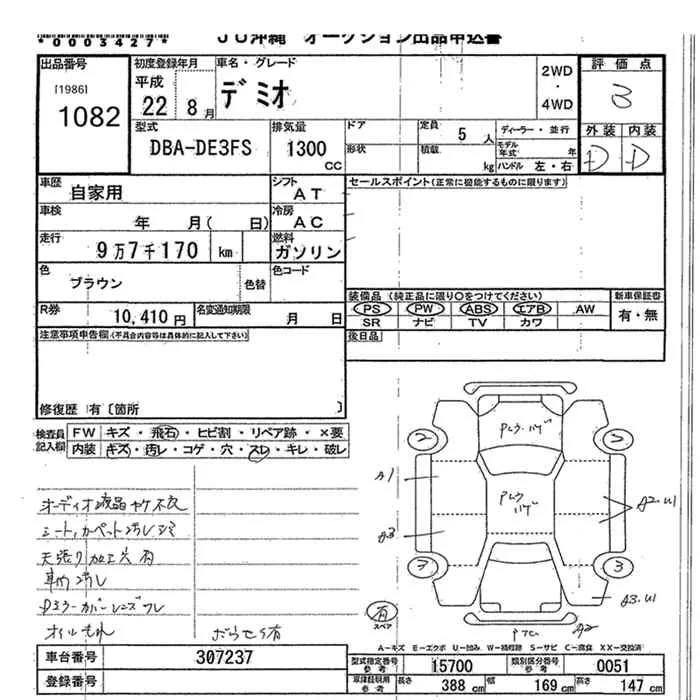 *0003427*
JU沖縄 オークション出品申込書
出品番号 初度登録年月 車名・グレード 評価点
[1986] 1082
平成 22年 8月
デミオ
2WD・4WD
3
外装 内装
D D
型式 DBA-DE3FS
排気量 1300 CC
ドア 定員 5人
形状 積載 kg
ディーラー・並行
モデル年式 年
ハンドル 左・右
車歴 自家用
シフト AT
セールスポイント(正常に機能するものに限ります)
車検 年 月( 日)
冷房 AC
走行 9万7千170 km
燃料 ガソリン
色 ブラウン 色替 色コード
R券 10,410円
名変通知期限 月 日
装備品 (純正品に限り○をつけてください)
PS PW ABS エアB AW
SR ナビ TV カワ
新車保証書 有・無
後日品
注意事項申告欄(不具合内容等は具体的に記入して下さい)
修復歴 有〔箇所 〕
検査員記入欄
FW キズ・飛石・ヒビ割・リペア跡・×要
内装 キズ・汚レ・コゲ・穴・スレ・キレ・破レ
オーディオ液晶ヤケ不良
シート,カーペット汚レシミ
天張り加工穴有
車内汚レ
オイルもれ
A1
A3
A2.U1
A3.U1
A2
有 スペア
A-キズ E-エクボ U-凹み W-補修跡 S-サビ C-腐食 XX-交換済
車台番号 307237
登録番号
型式指定番号 参考 15700
類別区分番号 参考 0051
車庫証明用 参考 長さ 388cm 幅 169cm 高さ 147cm